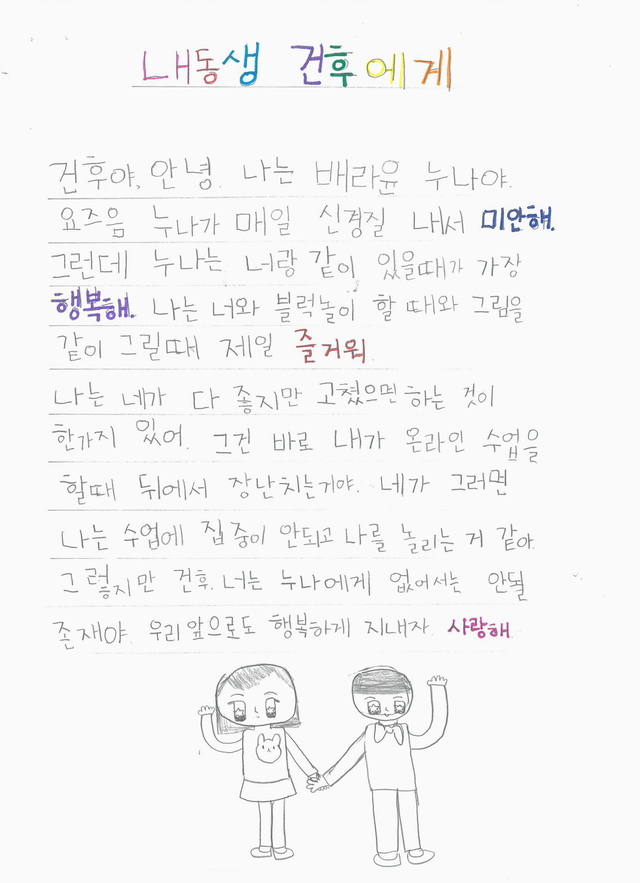 내동생 건후에게
건후야, 안녕. 나는 배라윤 누나야.
요즈음 누나가 매일 신경질 내서 미안해.
그런데 누나는 너랑 같이 있을때가 가장
행복해. 나는 너와 블럭놀이 할 때와 그림을
같이 그릴때 제일 즐거워.
나는 네가 다 좋지만 고쳤으면 하는 것이
한가지 있어. 그건 바로 내가 온라인 수업을
할때 뒤에서 장난치는거야. 네가 그러면
나는 수업에 집중이 안되고 나를 놀리는 거 같아.
그렇지만 건후, 너는 누나에게 없어서는 안될
존재야. 우리 앞으로도 행복하게 지내자. 사랑해.